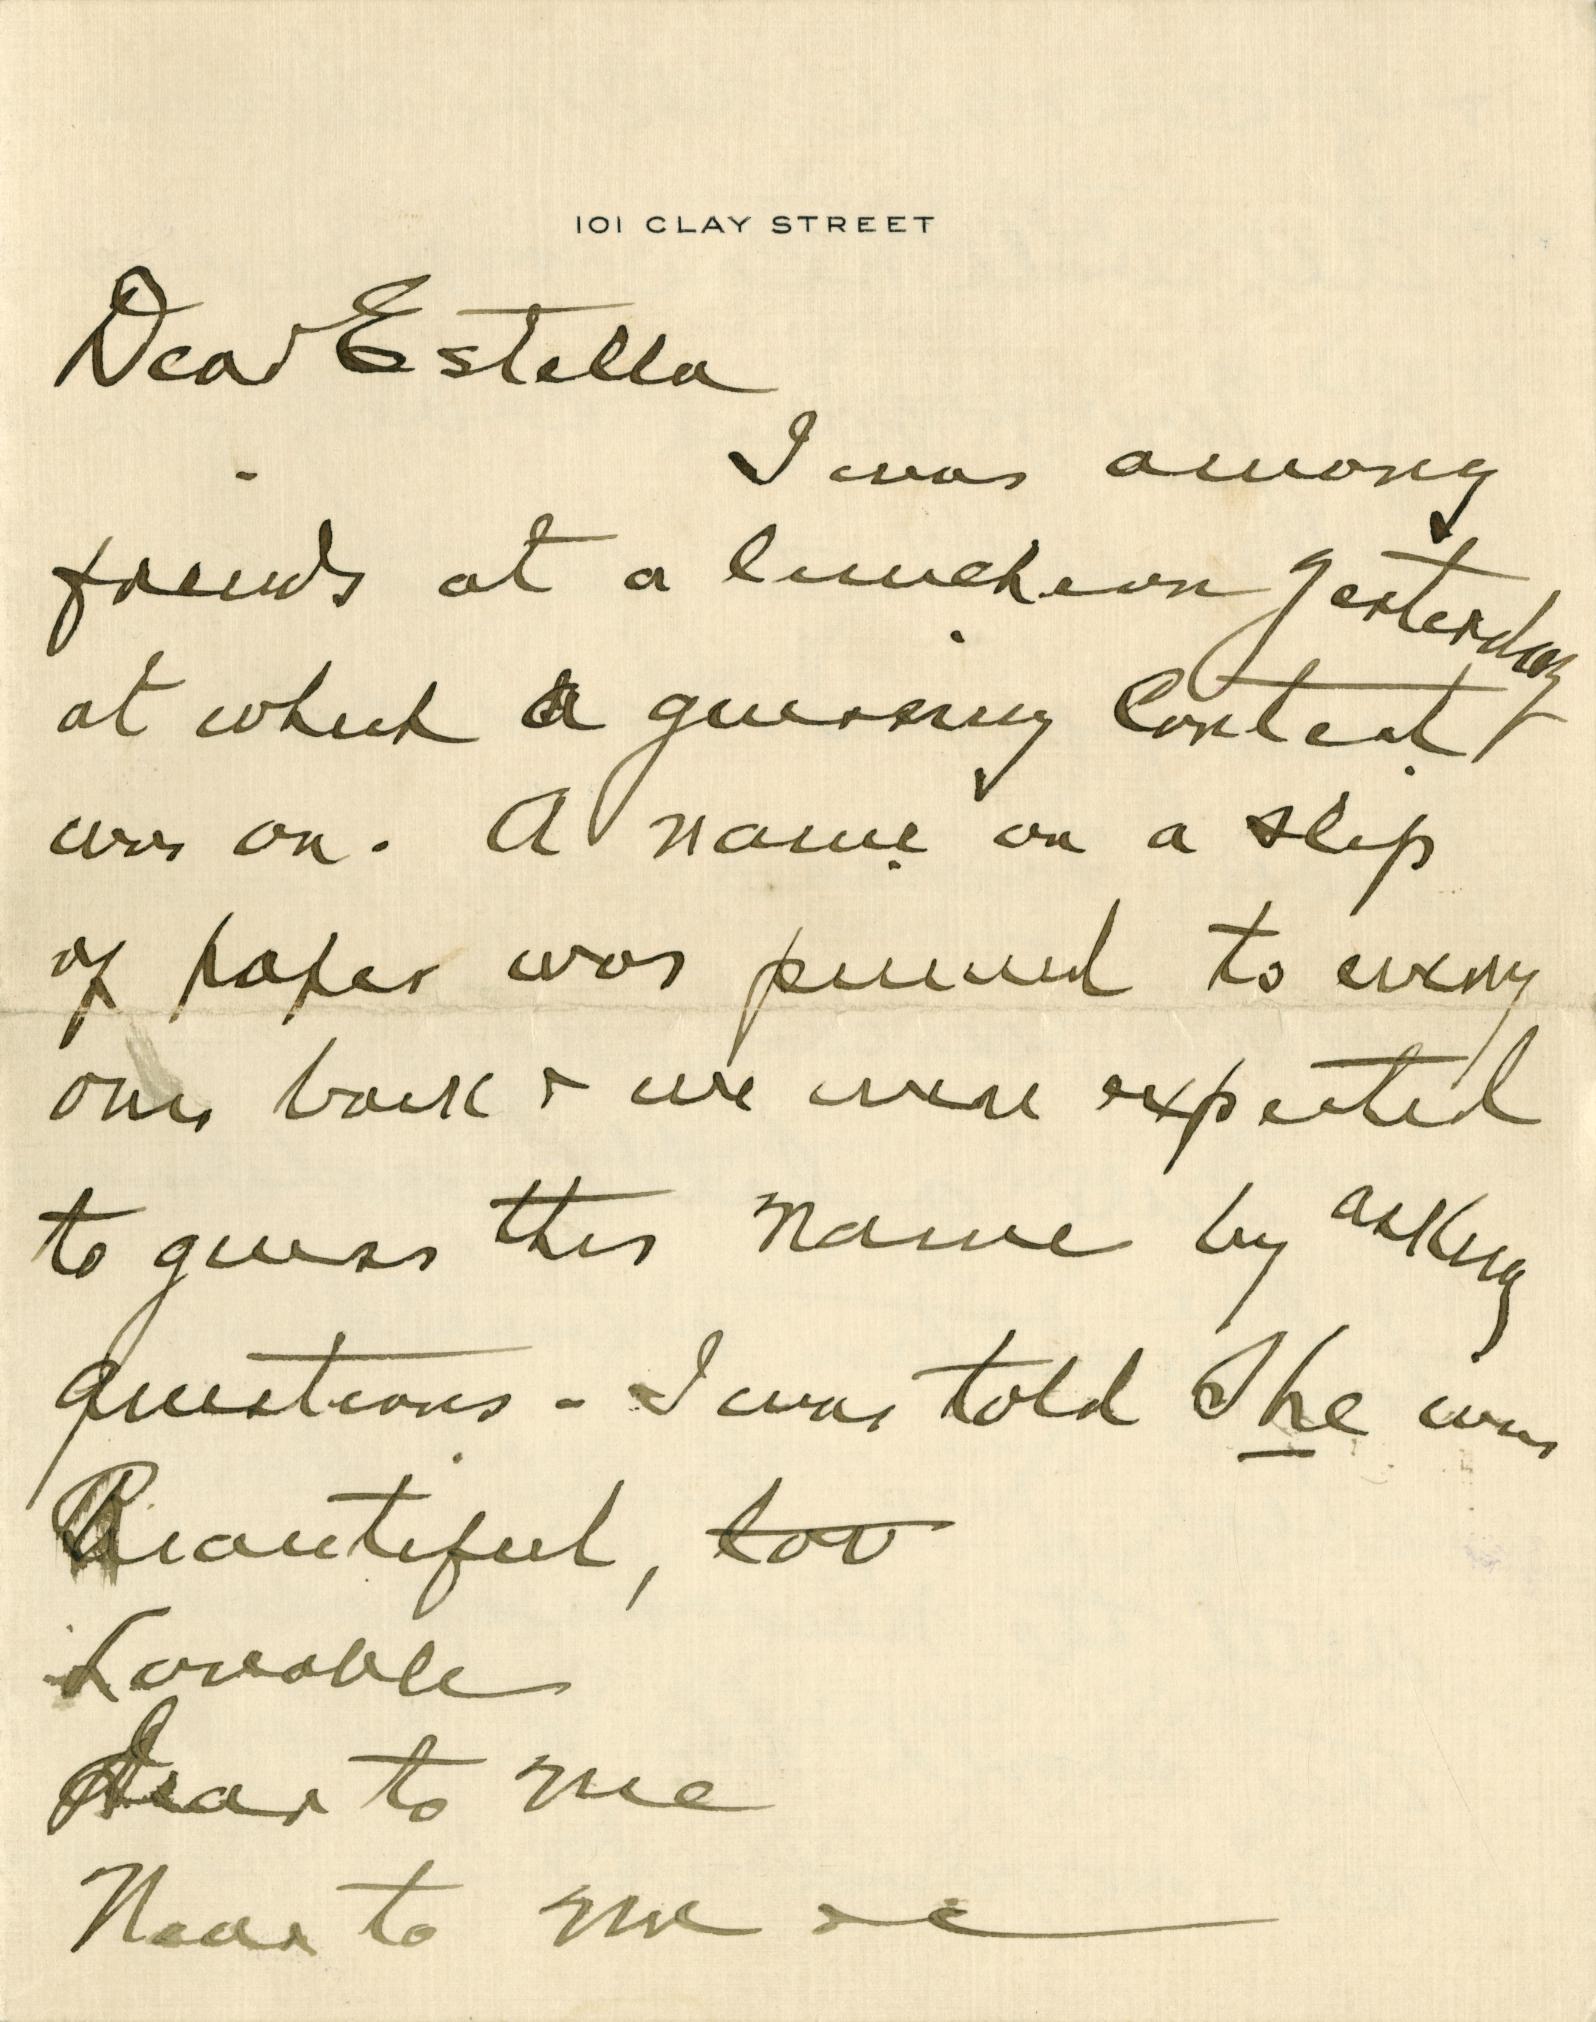 101 CLAY STREET
Dear Estella
I was among
friends at a luncheon yesterday
at which a guessing Contest
was on. A name on a slip
of paper was pinned to every
ones back & we were expected
to guess this name by asking
questions - I was told She was
Beautiful, lov
Lovable
Dear to me
Near to me &c